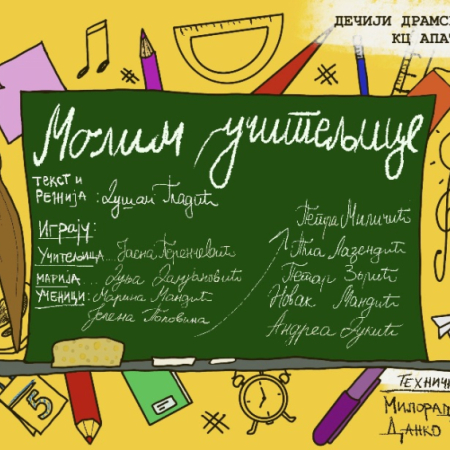 ДЕЧИЈИ ДРАМСК
КЦ АПАТ
Молим учитељице
ТЕКСТ И
РЕЖИЈА : Душан Гладић
Играју:
Учитељица... Јасна
МАРИЈА....
УЧЕНИЦИ: Марина Мандић
Јелена Поповића
Петра Миличић
Лазендић
Петар Зорић
Новак Мандић
Андреа Дукић
5
ТЕХНИЧК
МИЛОРАД
ДАНКО